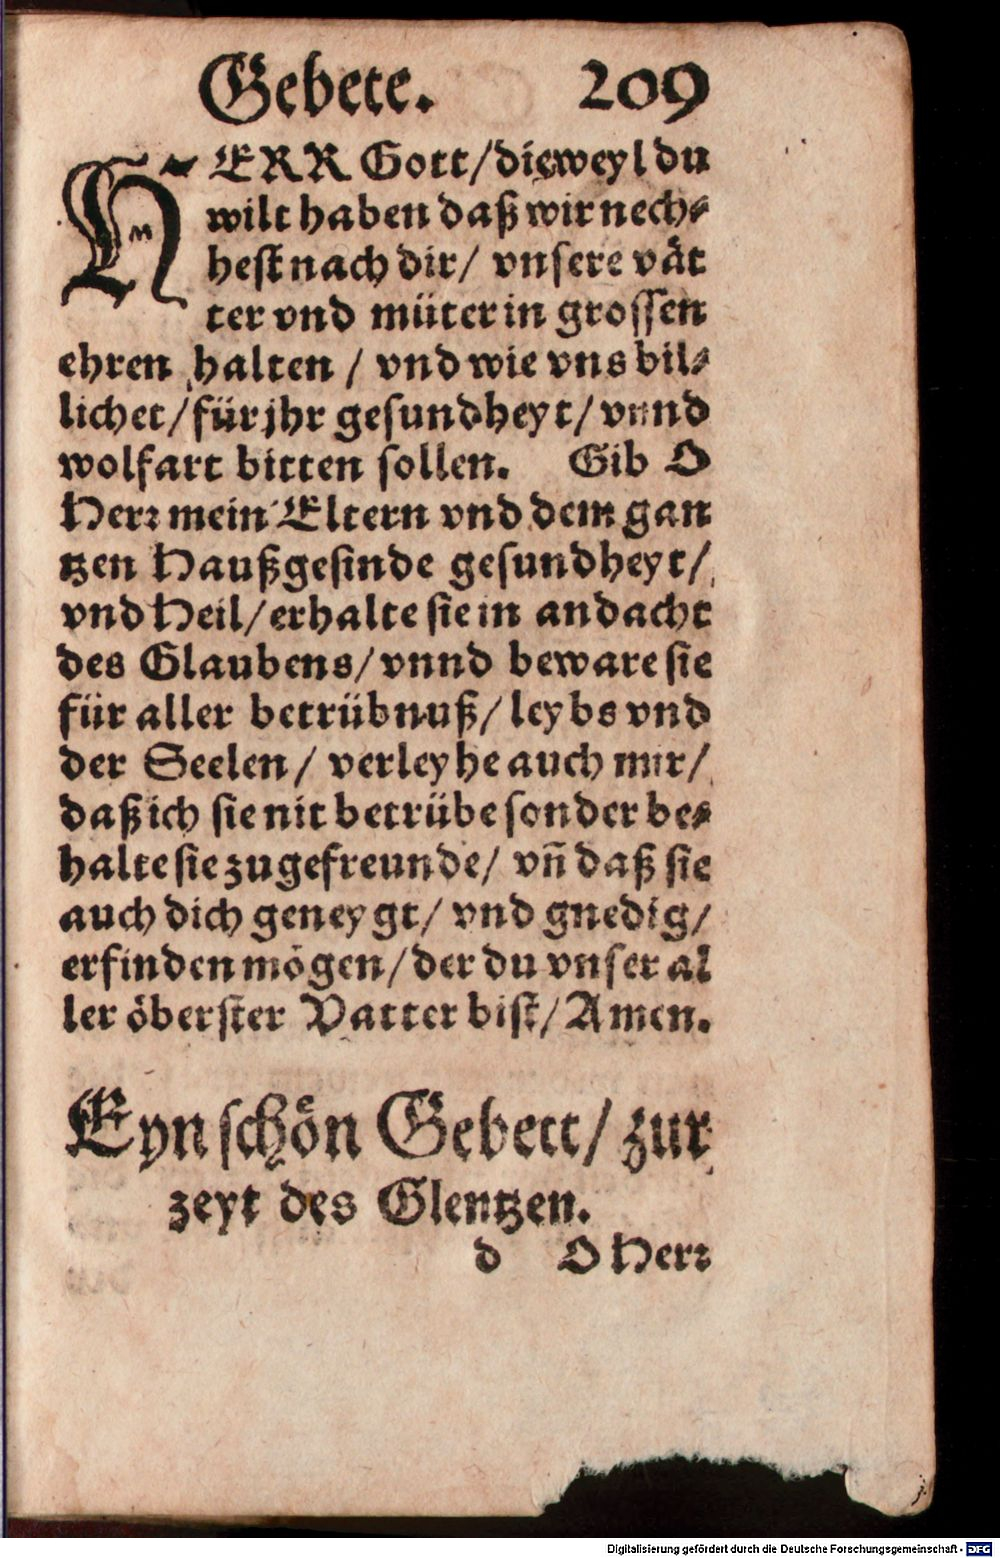 Gebete. 209
HERR Gott/dieweyl du
wilt haben daß wir nech⸗
hest nach dir/ vnsere vät
ter vnd müter in grossen
ehren halten / vnd wie vns bil⸗
lichet/für jhr gesundheyt/ vnnd
wolfart bitten sollen. Gib O
Herr mein Eltern vnd dem gan
tzen Haußgesinde gesundheyt/
vnd Heil/erhalte sie in andacht
des Glaubens/vnnd beware sie
für aller betrübnuß/leybs vnd
der Seelen/ verleyhe auch mir/
daß ich sie nit betrübe sonder be⸗
halte sie zu gefreunde/ vñ daß sie
auch dich geneygt/ vnd gnedig/
erfinden mögen/der du vnser al
ler öberster Vatter bist/Amen.
Eyn schön Gebett/ zur
zeyt des Glentzen.
d O Herr
Digitalisierung gefördert durch die Deutsche Forschungsgemeinschaft - DFG